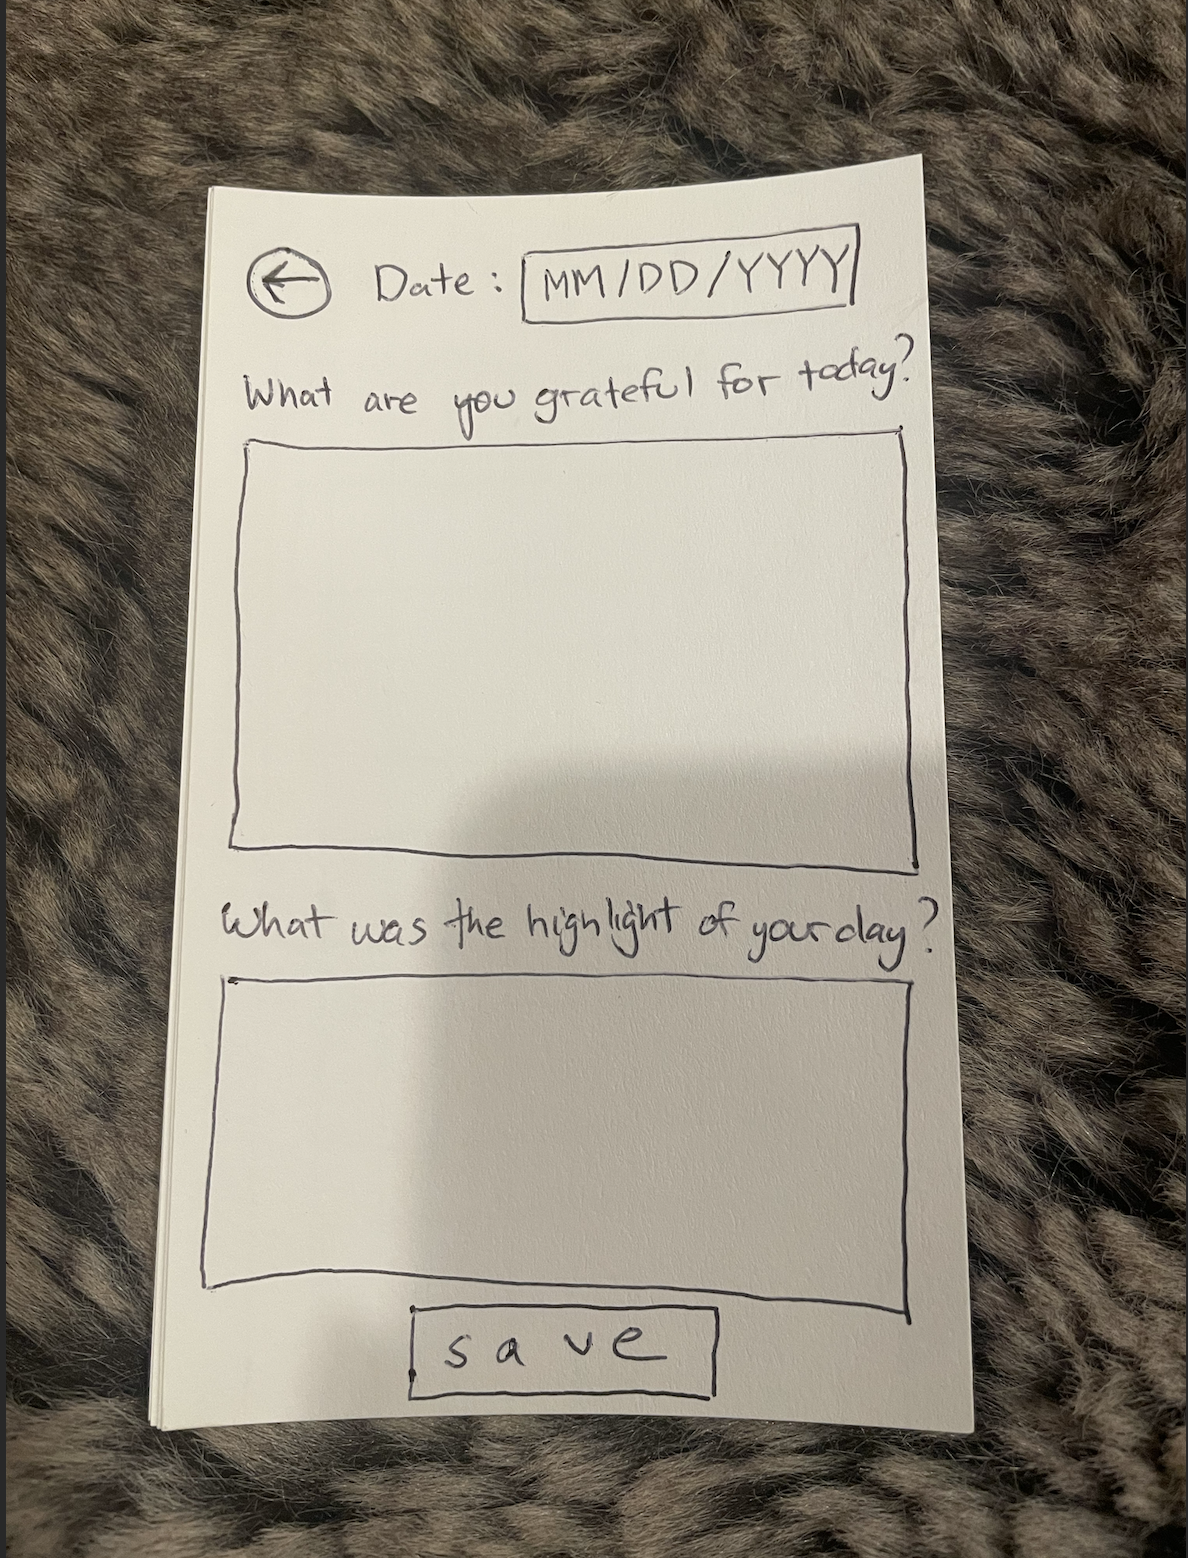 Date: MM/DD/YYYY
What are you grateful for today?
What was the highlight of your day?
save